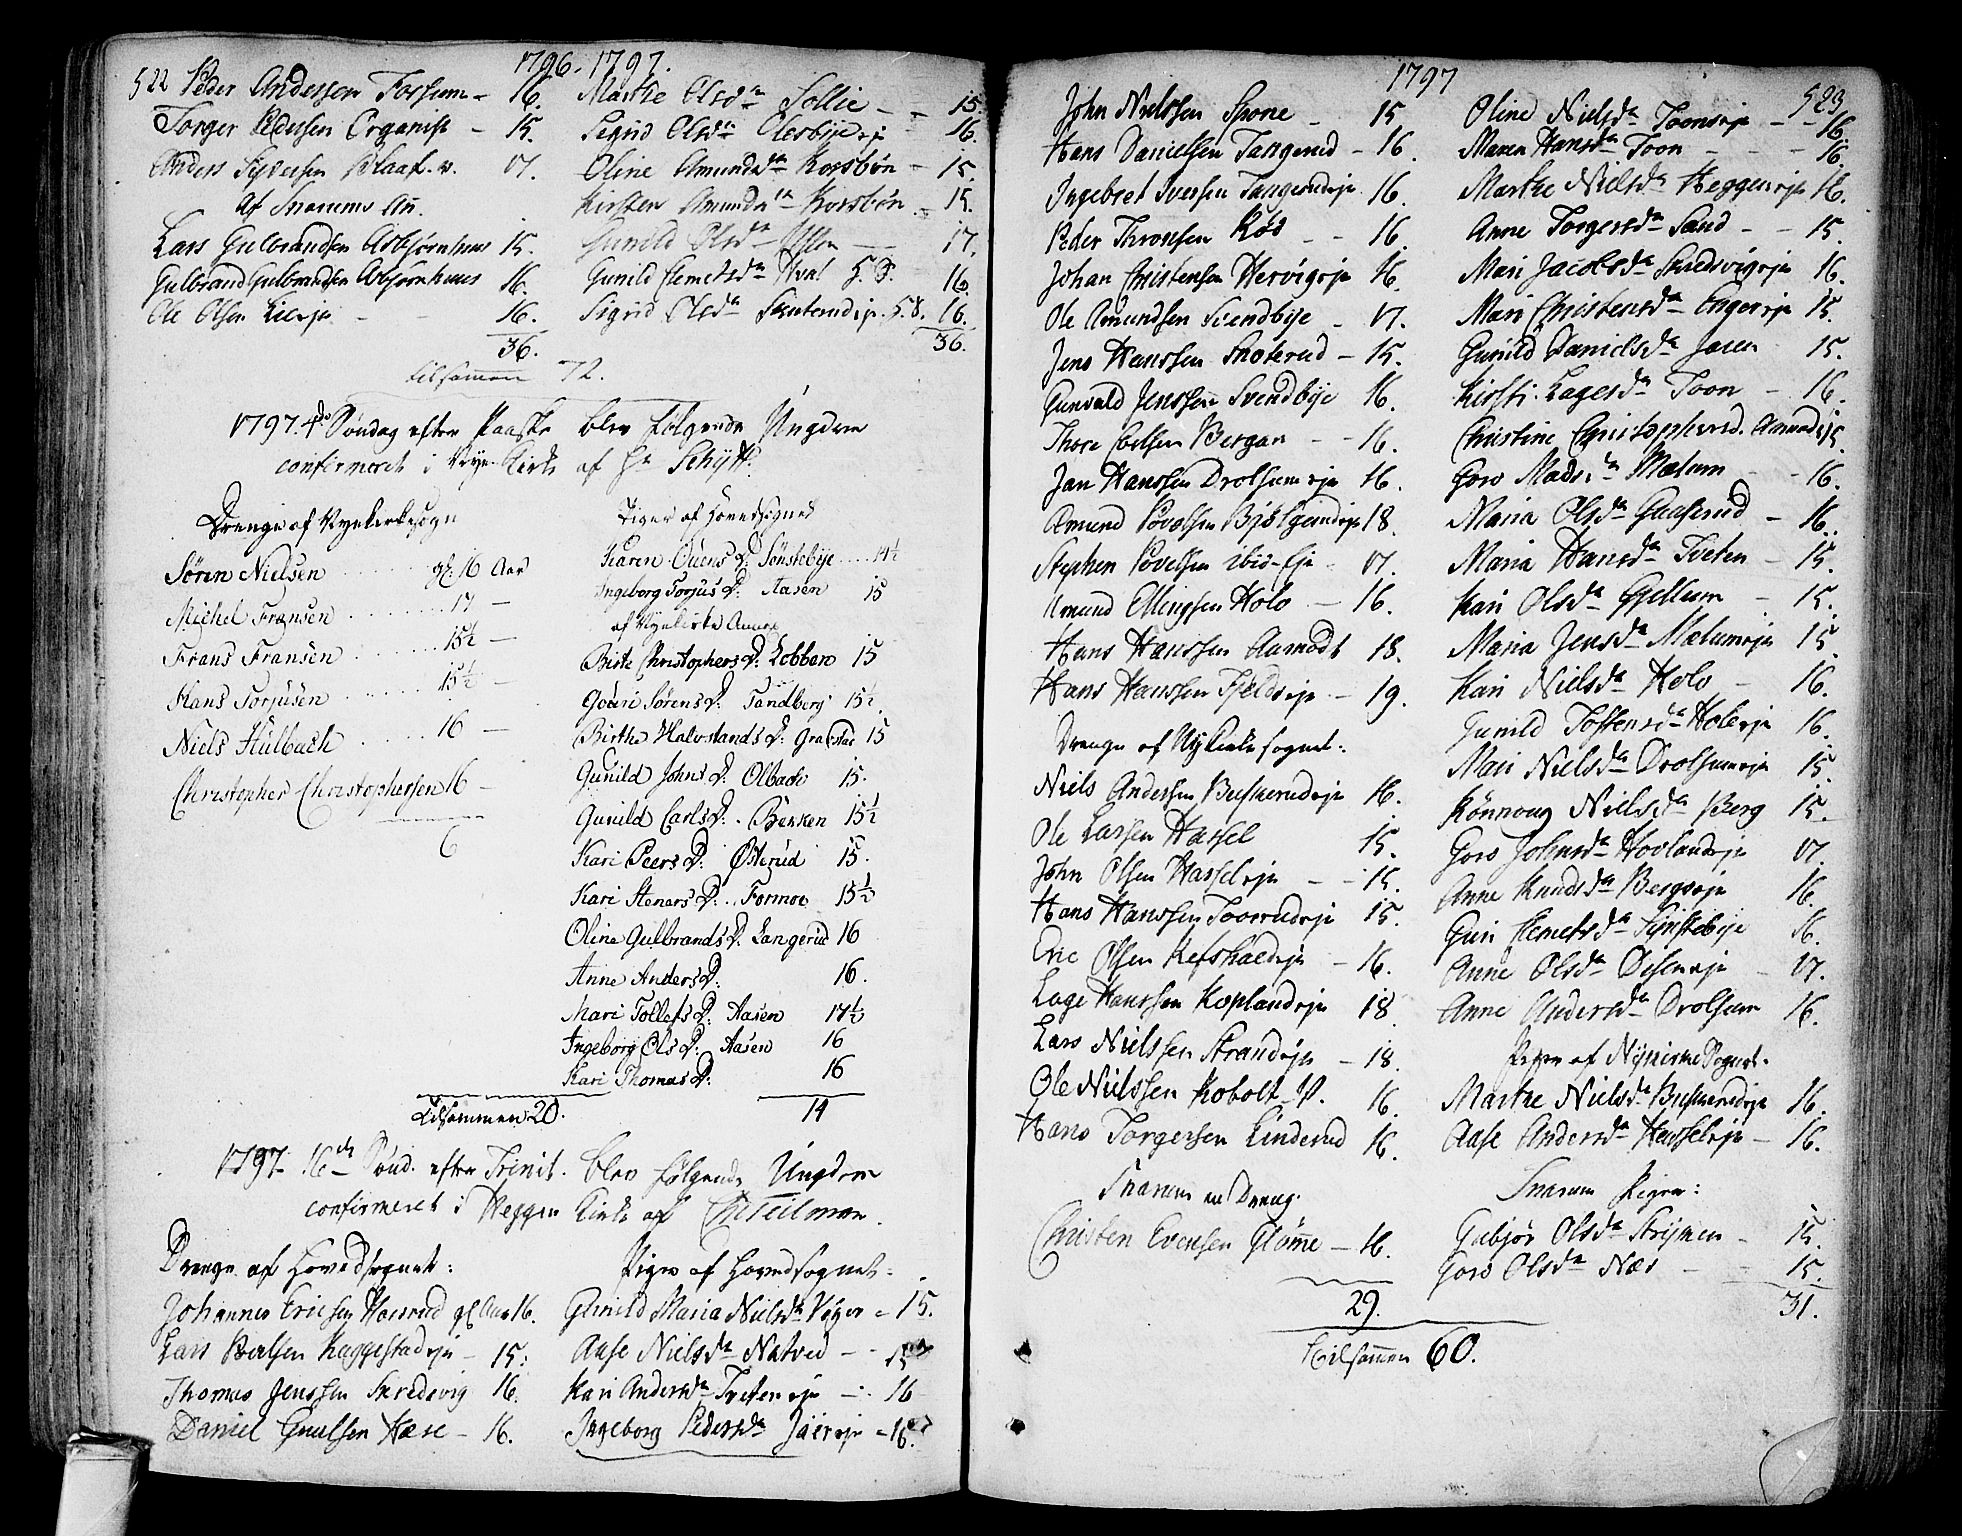 522
1796. 1797.
Peder Andersen Fossum - 16.
Torger Pedersen Organist - 15.
Anders Syversen Plaat. v. 17.
Af Snarums An.
Lars Gulbrandsen Asbjørnhuus 15.
Gulbrand Gulbrandsen Asbjørnhuus 16.
Ole Olsen Lierje - - 16.
36.
Marthe Olsda Sollie - - 15.
Sigrid Olsda 16.
Oline Amundsda Korsbøn - 15.
Kirsten Amundsda Korsbøn - 15.
Gunild Olsda - 17.
Gunild Clemetsda Hval S. 3. 16.
Sigrid Olsda Skuterudeje. S. 8. 16.
36.
tilsammen 72.
1797. 4de Søndag efter Paaske blev følgende Ungdom
confirmeret i Nye-Kirke af Hr Schytt.
Drenge af Nyekirkesogn
Søren Nielsen gl: 16 Aar
Michel Fransen 17 -
Frans Fransen 15½ -
Hans Torjusen 15½ -
Niels Hulbach 16 -
Christopher Christophersen 16 -
6
Piger af Hovedsognet
Karen Ouens D: Sønstebye 14½
Ingeborg Torjus D: Aasen 15
af Nyekirke Annex
Birte Christophers D: Lobben 15
Gouri Sørens D: Sandberg 15½.
Birthe Halvstands D: Gravstae 15
Gunild Johns D: Olbach 15.
Gunild Carls D: Benken 15½
Kari Peers D: Østerud 15.
Kari Steners D: Formoe 15½
Oline Gulbrands D: Langerud 16
Anne Anders D: 16.
Mari Tollefs D: Aasen 17½
Ingeborg Ols D: Aasen 16
Kari Thomas D: 16
14
Tilsammen 20.
1797 16de Sønd. efter Trinit. blev følgende Ungdom
confirmeret i Heggen Kirke af Ch: Teilman.
Drenge af Hovedsognet:
Johannes Ericsen Haverud gl Aar 16.
Lars Paulsen Kaggestadeje - 15:
Thomas Jenssen Skredsvig 16.
Daniel Gnulssen Hære - 16.
Piger af Hovedsognet:
Gunild Maria Nielsda Viger - 15.
Aase Nielsda Natved - - 15
Kari Andersda Tveteneje - 16
Ingeborg Pedersda Jareeje - 16.
1797
523
John Nielssen Spone - 15
Hans Danielsen Tangerud - 16.
Ingebret Iversen Tangerudeje 16.
Peder Thronsen Røs - - 16.
Johan Christensen Hervigeje 16.
Ole Amundsen Svendbye - 17.
Jens Hanssen Snoterud - 15.
Gunvald Jenssen Svendbye 16.
Thore Ebelsen Bergan - - 16.
Jan Hanssen Drolsumeje 16.
Amund Povelsen Bjølgerudeje 18.
Stephen Povelsen ibid-Eje - 17.
Amund Ellingsen Holo - 16.
Hans Hanssen Aamodt 18.
Hans Hanssen Fjeldeje - 19.
Drenge af Nykirkesognet:
Niels Andersen Buskerudeje 16.
Ole Larsen Hassel 15.
John Olsen Hasseleje - - 15.
Hans Hanssen Tooverudeje 15.
Eric Olsen - 16.
Lage Hanssen Koplandeje 18.
Lars Nielssen Strandeje - 18.
Ole Nielssen Kobolt-V. 16.
Hans Torgersen Linderud 16.
Snarum en Dreng.
Christen Evensen Glømme - 16.
29.
Oline Nielsda Tooneeje - 16.
Maren Hansda Toon - - - 16.
Marthe Nielsda Heggeneje 16.
Anne Torgersda Sand - - 15.
Mari Jacobsda Skredsvigeje 16.
Mari Christensda Engereje 15.
Gunild Danielsda Jaren 15.
Kirsti Lagesda Toon - 16.
Christine Christophersd. Aamodt 15.
Goro Madsda Mælum - - 16.
Maria Olsda Gaaserud - 16.
Maria Hansda Tveten - 15.
Kari Olsda Gjellum - 15.
Maria Jensda Mælumeje 15.
Kari Nielsda Holo - 16.
Gunild Toffensda Holeeje 16.
Mari Nielsda Drolsumeje 15.
Rønnoug Nielsda Berg 15.
Goro Johnsda Hovlandeje 17.
Anne Knudsda Bergeeje 16.
Guri Clemetsda Synstebye 16.
Anne Olsda - 17.
Anne Andersda Drolsum 16.
Piger af Nykirke Sognet.
Marthe Nielsda Buskerudeje 16.
Aase Andersda Hasseleje - 16.
Snarum Piger:
Gubjør Olsda Strijmen - 15.
Goro Olsda Næs - - 15.
31.
tilsammen 60.